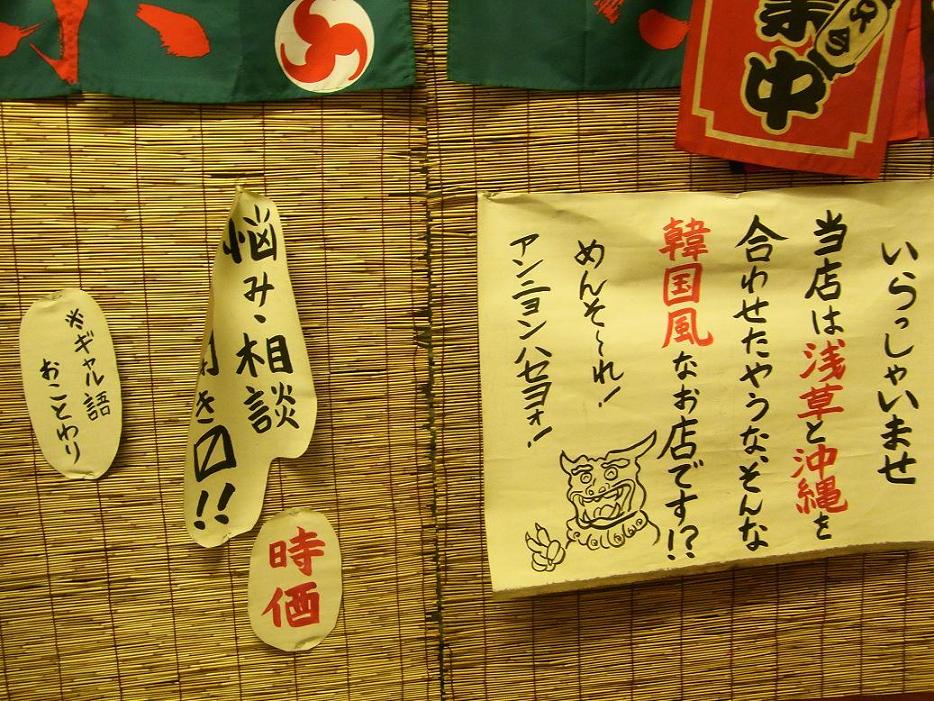 業中
いらっしゃいませ
当店は浅草と沖縄を
合わせたやうなそんな
韓国風なお店です!?
めんそ〜れ!
アンニョンハセヨォ!
悩み、相談
き〼!!
時価
※ギャル語
おことわり